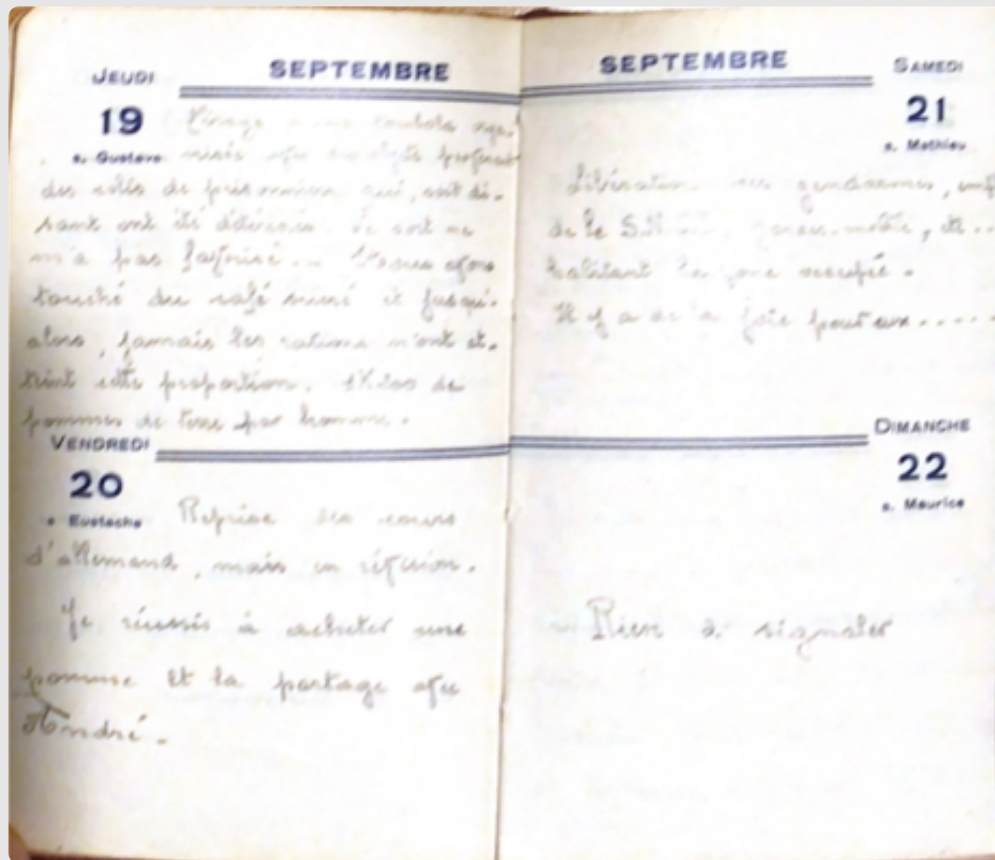 JEUDI
SEPTEMBRE
19
s. Gustave
des colis de prisonniers qui, soit di-
sant ont été détériorés. Le sort ne
m'a pas favorisé... Nous avons
touché du café sucré et jusqu'-
alors, jamais les rations n'ont at-
teint cette proportion. de
pommes de terre par homme.
VENDREDI
20
s. Eustache
Reprise des cours
d'allemand, mais en révision.
Je réussis à acheter une
pomme et la partage avec
André.
SEPTEMBRE
SAMEDI
21
s. Mathieu
Libération des gendarmes,
de la garde mobile, etc...
habitant la zone occupée.
Il y a de la joie pour eux.....
DIMANCHE
22
s. Maurice
Rien à signaler